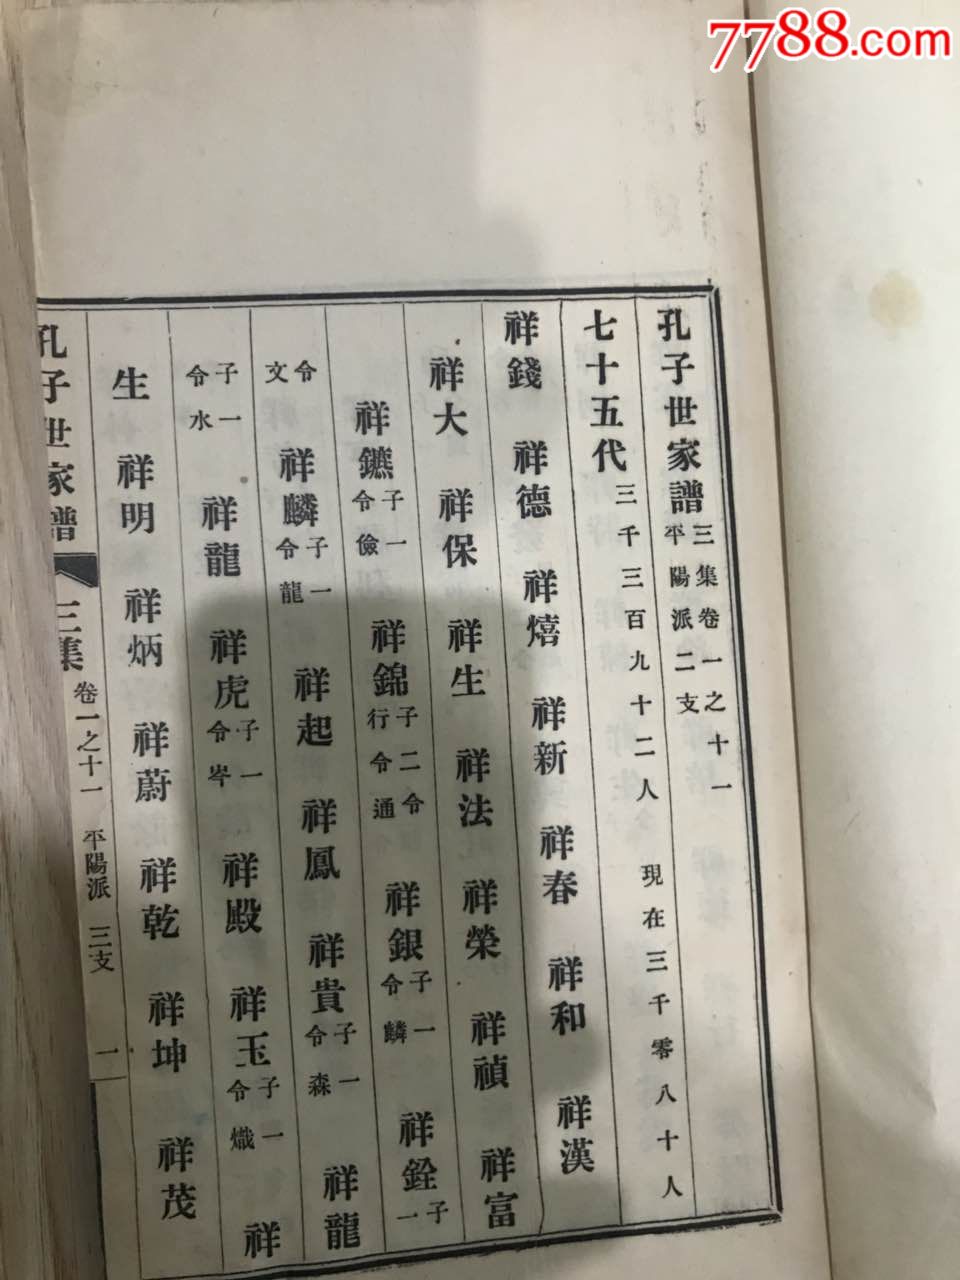 7788.com
孔子世家譜 三集卷一之十一 平陽派二支
七十五代 三千三百九十二人 現在三千零八十人
祥錢 祥德 祥熺 祥新 祥春 祥和 祥漢
祥大 祥保 祥生 祥法 祥榮 祥禎 祥富
祥鑣 子一令儉 祥錦 子二令行令通 祥銀 子一令麟 祥銓 子一
令文 祥麟 子一令龍 祥起 祥鳳 祥貴 子一令森 祥龍
子一令水 祥龍 祥虎 子一令岑 祥殿 祥玉 子一令熾 祥
生 祥明 祥炳 祥蔚 祥乾 祥坤 祥茂
孔子世家譜 三集 卷一之十一 平陽派 三支 一